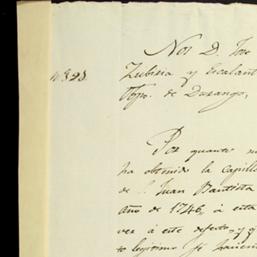 Nos D. José
Zubiria y Escalant
Obpo. de Durango,
Por quanto
ha obtenido la Capilla
de S. Juan Bautista
año de 1746, á esta
ver á este defecto, y q